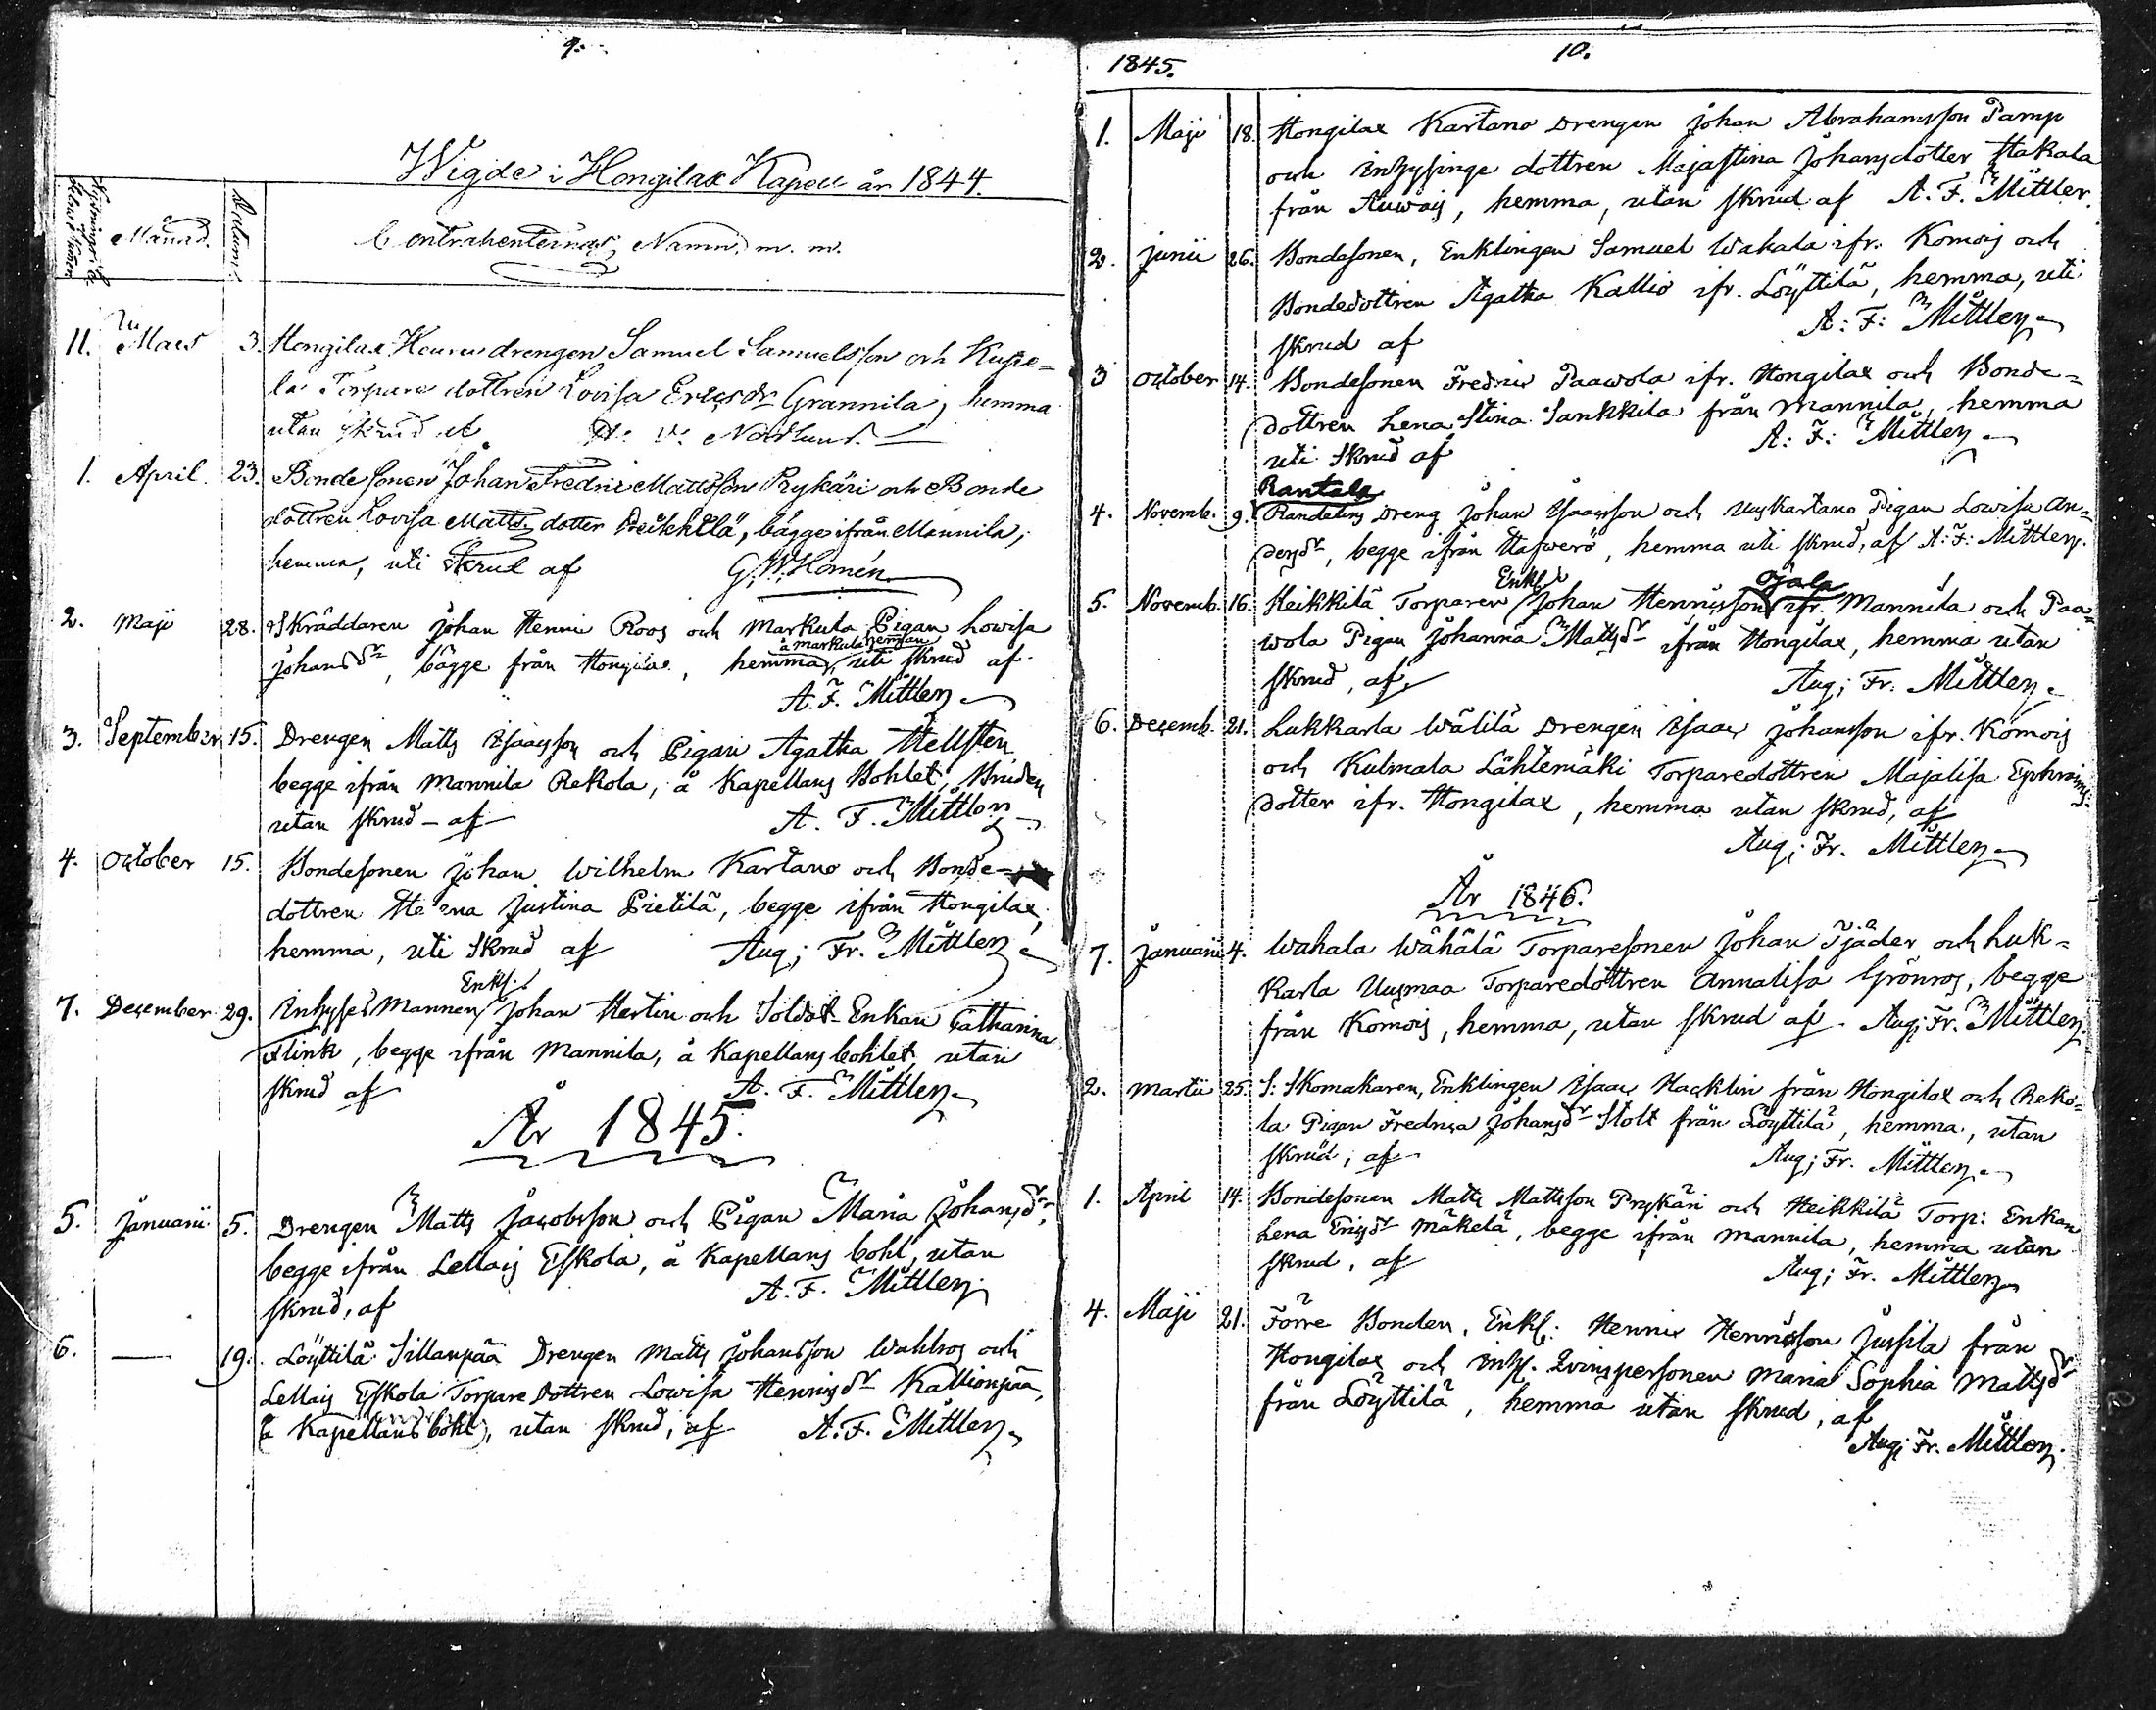 9.
Wigde i Hongilax Kapell år 1844.
Månad.
Datum.
Contrahenternas Namn, m. m.
11. Mars 3. Hongilax Heuru drengen Samuel Samuelsson och Kupe-
la Torpare dottren Lovisa Ericsdr Grannila, hemma
utan skrud af Nordlund.
1. April. 23. Bonde sonen Johan Fredric Mattsson Prykäri och Bonde
dottren Lovisa Matts dotter Preikkilä, bägge ifrån Mannila,
hemma, uti Skrud af G. W. Homén.
2. Maji 28. Skräddaren Johan Henric Roos och Markula Pigan Lowisa
å Markula heman
Johansdr, bägge från Hongilax, hemma, uti skrud af
A. F. Mittler
3. September 15. Drengen Matts Isaacsson och Pigan Agatha Hellsten
begge ifrån Mannila Rekola, å Kapellans Bohlet, Bruden
utan skrud - af A. F. Mittler
4. October 15. Bondesonen Johan Wilhelm Kartano och Bonde-
dottren Helena Justina Pietilä, begge ifrån Hongilax,
hemma, uti Skrud af Aug; Fr. Mittler
Enkl.
7. December 29. Inhyses Mannen Johan Hertin och Soldat-Enkan Catharina
Flink, begge ifrån Mannila, å Kapellans bohlet, utan
skrud af A. F. Mittler
År 1845.
5. Januarii 5. Drengen Matts Jacobsson och Pigan Maria Johansdr,
begge ifrån Lellais Eskola, å Kapellans bohl, utan
skrud, af A. F. Mittler
6. — 19. Löyttilä Sillanpää Drengen Matts Johansson Wahlros och
Lellais Eskola Torpare Dottren Lowisa Henricsdr Kallionpää,
å Kapellans bohl, utan skrud, af A. F. Mittler
1845.
10.
1. Maji 18. Hongilax Kartano Drengen Johan Abrahamsson Pamp
och Inhysinge dottren Majastina Johansdotter Hakala
från Auwais, hemma, utan skrud af A. F. Mittler.
2. Junii 26. Bondesonen, Enklingen Samuel Wahala ifr. Komois och
Bondedottren Agatha Kallio ifr. Löyttilä, hemma, uti
skrud af A: F: Mittler
3 October 14. Bondesonen Fredric Paawola ifr. Hongilax och Bonde-
dottren Lena Stina Sankkila från Mannila, hemma
uti Skrud af A: F: Mittler
Rantala
4. Novemb. 9. Randelins Dreng Johan Isaacsson och Uuskartano Pigan Lowisa An-
dersdr, begge ifrån Hafwerö, hemma uti skrud, af A: F: Mittler.
Enkl. Ojala
5. Novemb. 16. Heikkilä Torparen Johan Henricsson ifr. Mannila och Paa-
wola Pigan Johanna Mattsdr ifrån Hongilax, hemma utan
skrud, af Aug; Fr. Mittler
6. Decemb. 21. Lukkarla Wälilä Drengen Isaac Johansson ifr. Komois
och Kulmala Lähtemäki Torparedottren Majalisa Ephraims-
dotter ifr. Hongilax, hemma utan skrud, af
Aug; Fr. Mittler
År 1846.
7. Januarii 4. Wahala Wähälä Torparesonen Johan Tjäder och Luk-
karla Uusmaa Torparedottren Annalisa Grönros, begge
från Komois, hemma, utan skrud af. Aug; Fr. Mittler
2. Martii 25. S: Skomakaren, Enklingen Isaac Hacklin från Hongilax och Reko-
la Pigan Fredrica Johansdr Stolt från Löyttilä, hemma, utan
skrud, af Aug; Fr. Mittler
1. April 14. Bondesonen Matts Mattsson Prykäri och Heikkilä Torp: Enkan
Lena Ericsdr Mäkelä, begge ifrån Mannila, hemma utan
skrud, af Aug; Fr. Mittler
4. Maji 21. Förre Bonden, Enkl: Henric Henricsson Jussila från
Hongilax och Inh. Qvinspersonen Maria Sophia Mattsdr
från Löyttilä, hemma utan skrud, af
Aug; Fr. Mittler.